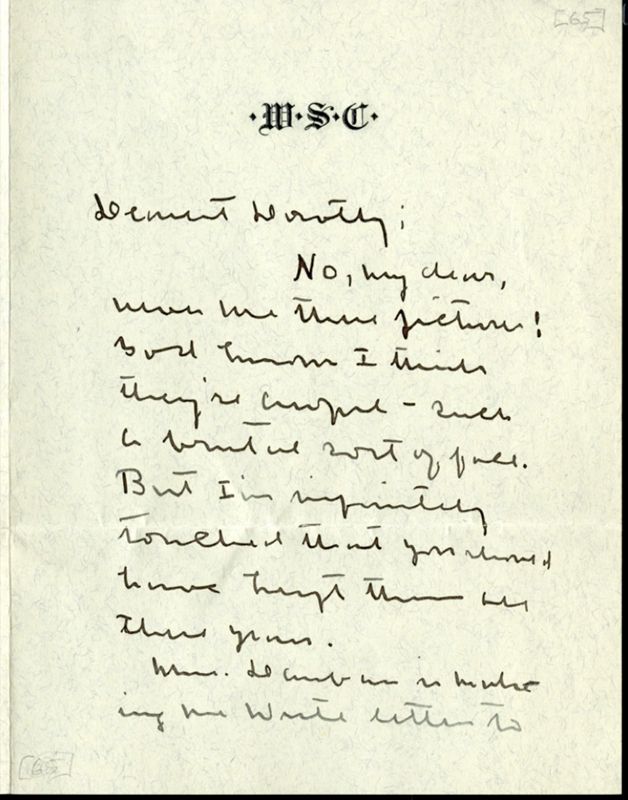 [65]
·W·S·C·
Dearest Dorothy;
No, my dear,
never use these pictures!
God knows I think
they're awful – such
a brutal sort of face.
But I'm infinitely
touched that you should
have kept them all
these years.
Mrs. is mak-
ing me write letters to
[65]